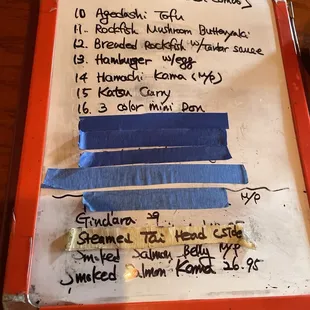 10 Agedashi Tofu
11. Rockfish Mushroom Butteryaki
12. Breaded Rockfish w/Tartar sauce
13. Hamburger w/egg
14 Hamachi Kama (M/P)
15 Katsu Curry
16. 3 color mini Don
M/P
Gindara 29
Steamed Tai Head (side
Smoked Salmon Belly M/P
Smoked Salmon Kama 26.95